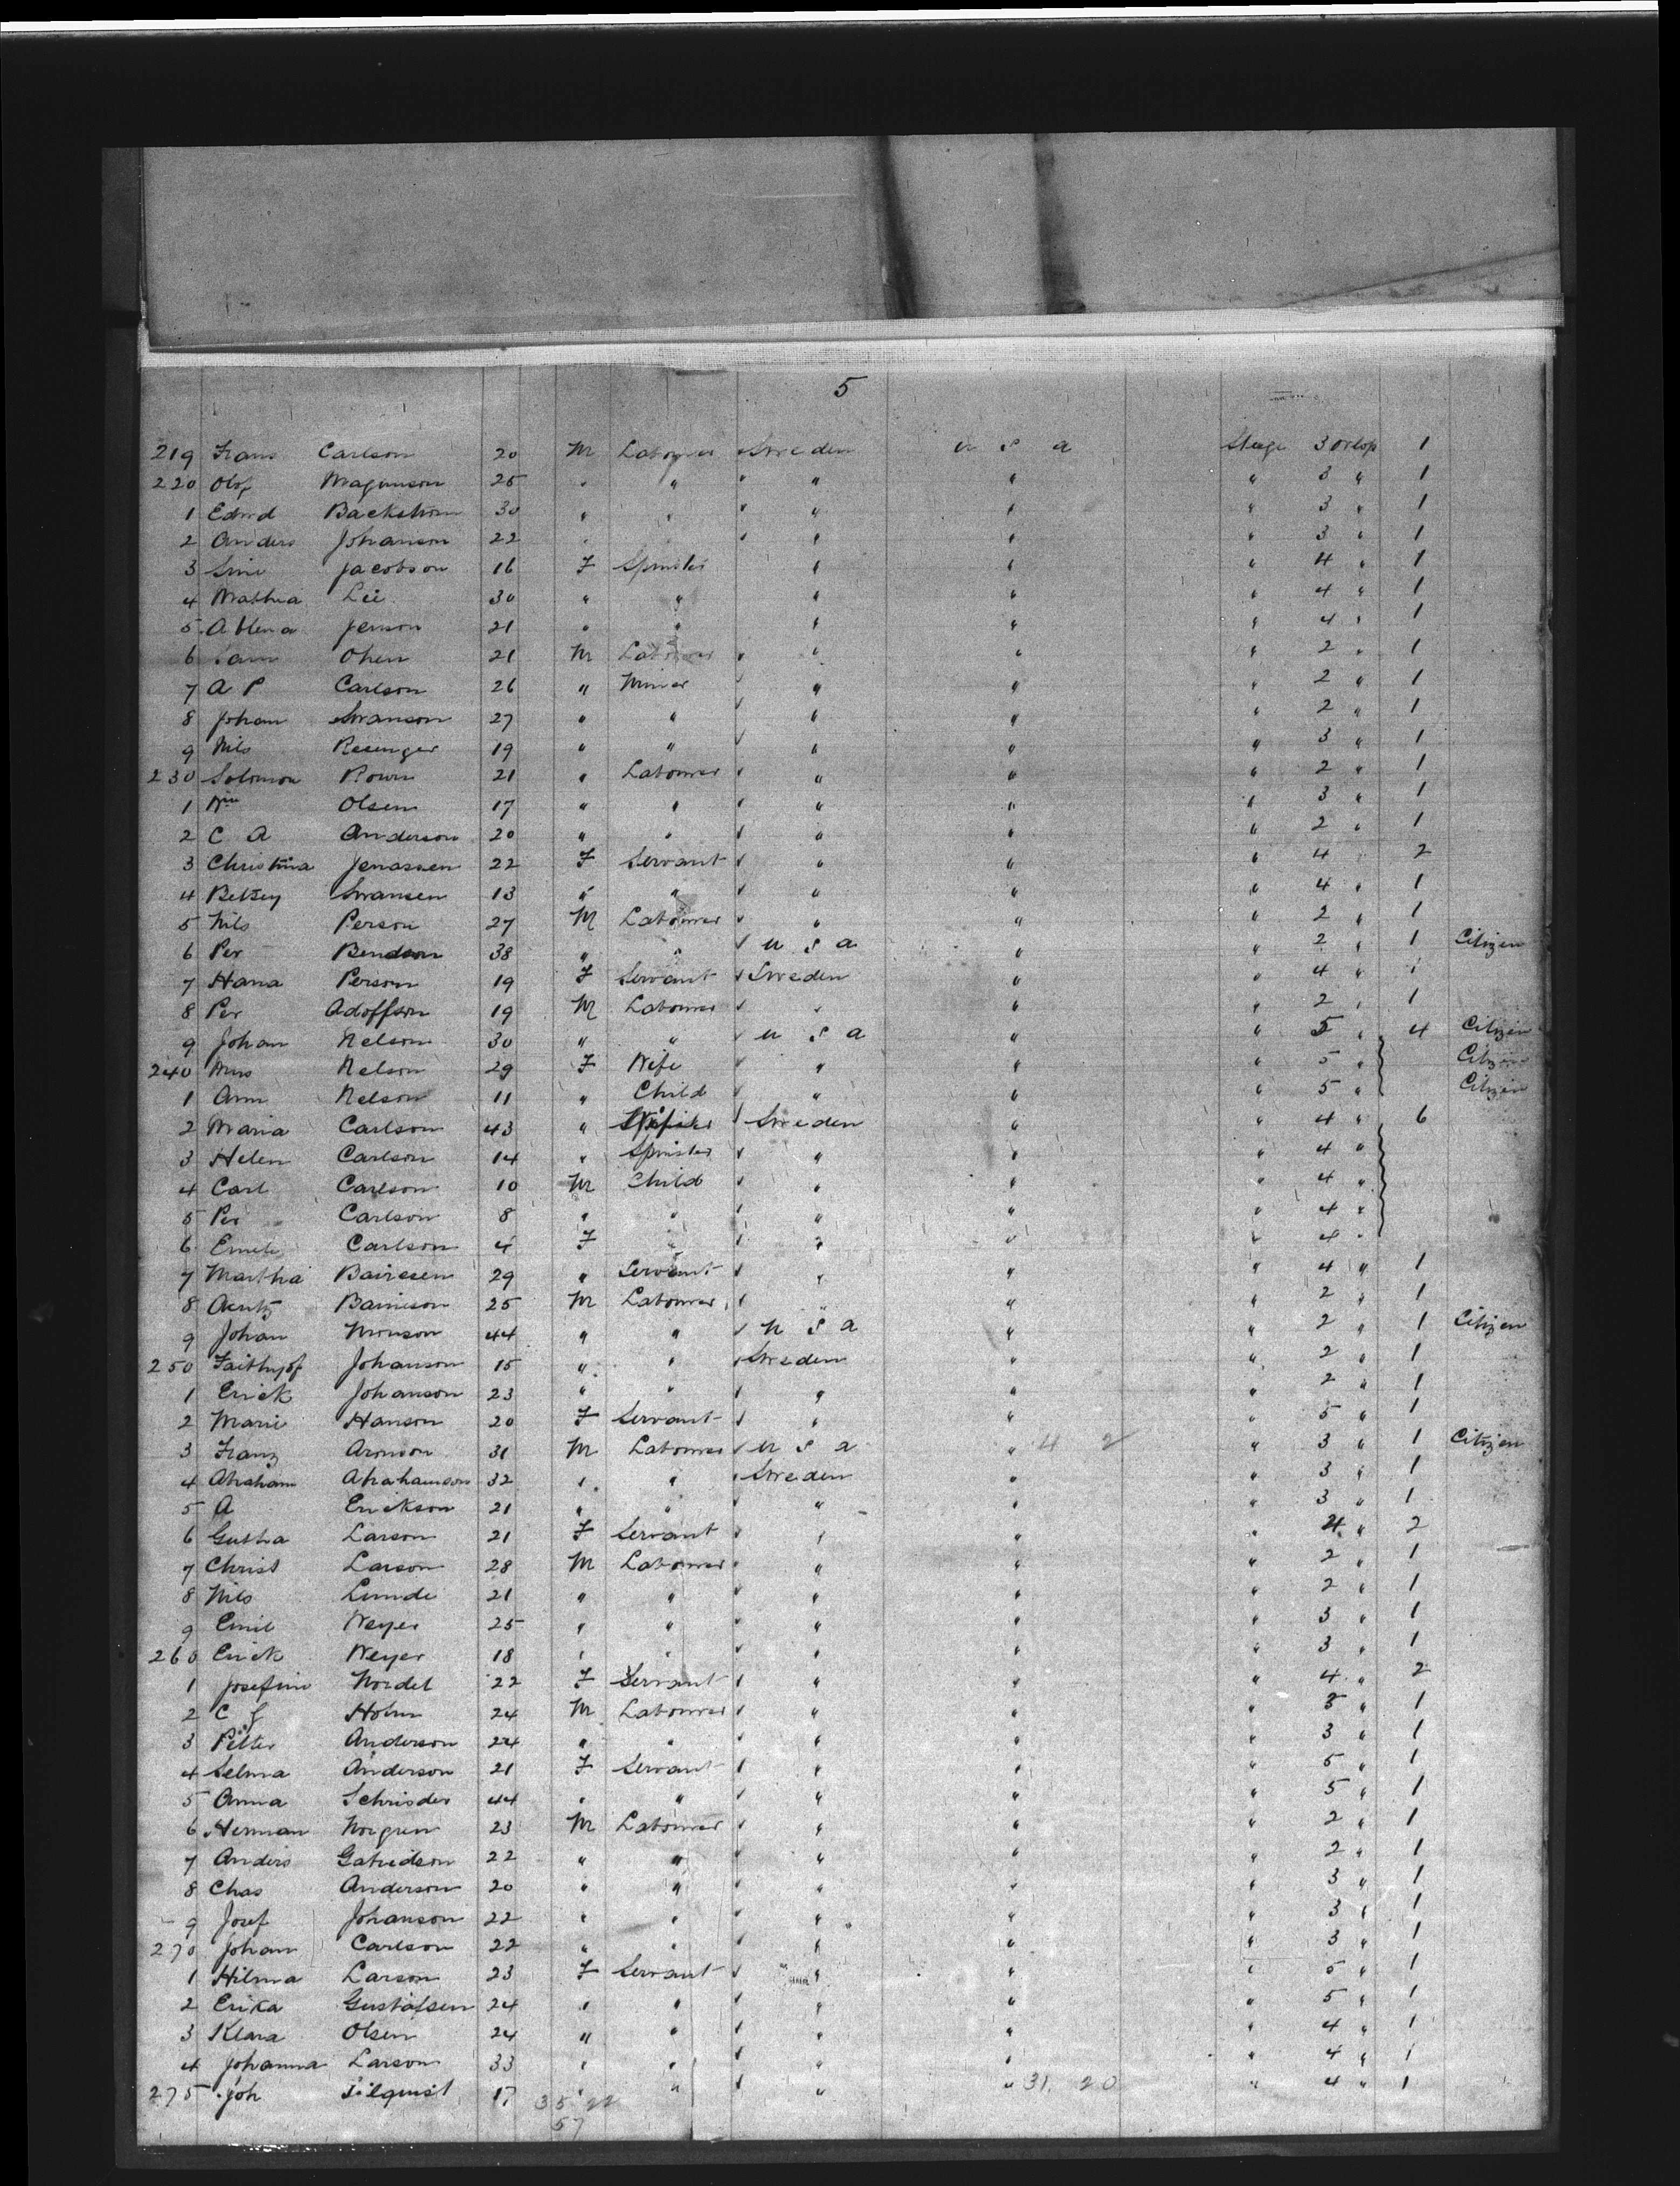 5
219 Frans Carlson 20 M Labourer Sweden U S A Steage 3 Orlop 1
220 Olof Magunson 25 " " " " " 3 " 1
1 Edwd Backstrom 30 " " " " " 3 " 1
2 Anders Johanson 22 " " " " " 3 " 1
3 Jacobson 16 F Spinster " " " 4 " 1
4 Mathea Lie 30 " " " " " 4 " 1
5 Jenson 21 " " " " " 4 " 1
6 21 M Labourer " " " 2 " 1
7 A P Carlson 26 " Miner " " " 2 " 1
8 Johan Swanson 27 " " " " " 2 " 1
9 Nils Resinger 19 " " " " " 3 " 1
230 Solomon 21 " Labourer " " " 2 " 1
1 Wm Olsen 17 " " " " " 3 " 1
2 C A Anderson 20 " " " " " 2 " 1
3 Christina Jenassen 22 F Servant " " " 4 " 2
4 Betsey Swansen 13 " " " " " 4 " 1
5 Nils Person 27 M Labourer " " " 2 " 1
6 Per Bendson 38 " " U S A " " 2 " 1 Citizen
7 Hana Person 19 F Servant Sweden " " 4 " 1
8 Per Adoffson 19 M Labourer " " " 2 " 1
9 Johan Nelson 30 " " U S A " " 5 " 4 Citizen
240 Mrs Nelson 29 F Wife " " " 5 " Citizen
1 Ann Nelson 11 " Child " " " 5 " Citizen
2 Maria Carlson 43 " Wife Sweden " " 4 " 6
3 Helen Carlson 14 " Spinster " " " 4 "
4 Carl Carlson 10 M Child " " " 4 "
5 Per Carlson 8 " " " " " 4 "
6 Carlson 4 F " " " " 4 "
7 Martha Bairesen 29 " Servant " " " 4 " 1
8 25 M Labourer " " " 2 " 1
9 Johan Monson 44 " " U S A " " 2 " 1 Citizen
250 Faithyof Johanson 15 " " Sweden " " 2 " 1
1 Erick Johanson 23 " " " " " 2 " 1
2 Marie Hanson 20 F Servant " " " 5 " 1
3 Franz Aronson 31 M Labourer U S A " 4 2 " 3 " 1 Citizen
4 Abraham Abrahamson 32 " " Sweden " " 3 " 1
5 A Erickson 21 " " " " " 3 " 1
6 Gustva Larson 21 F Servant " " " 4 " 2
7 Christ Larson 28 M Labourer " " " 2 " 1
8 Nils Lunde 21 " " " " " 2 " 1
9 Emil Weyer 25 " " " " " 3 " 1
260 Erick Weyer 18 " " " " " 3 " 1
1 Josefine Nordel 22 F Servant " " " 4 " 2
2 C Holm 24 M Labourer " " " 3 " 1
3 Petter Anderson 24 " " " " " 3 " 1
4 Selma Anderson 21 F Servant " " " 5 " 1
5 Anna Schrisder 44 " " " " " 5 " 1
6 Herman Norgren 23 M Labourer " " " 2 " 1
7 Anders Gabridson 22 " " " " " 2 " 1
8 Chas Anderson 20 " " " " " 3 " 1
9 Josef Johanson 22 " " " " " 3 " 1
270 Johan Carlson 22 " " " " " 3 " 1
1 Hilma Larson 23 F Servant " " " 5 " 1
2 Erika Gustafsen 24 " " " " " 5 " 1
3 Klara Olsen 24 " " " " " 4 " 1
4 Johanna Larson 33 " " " " " 4 " 1
275 Joh Filquist 17 " " " " 31 20 " 4 " 1
35 22
57